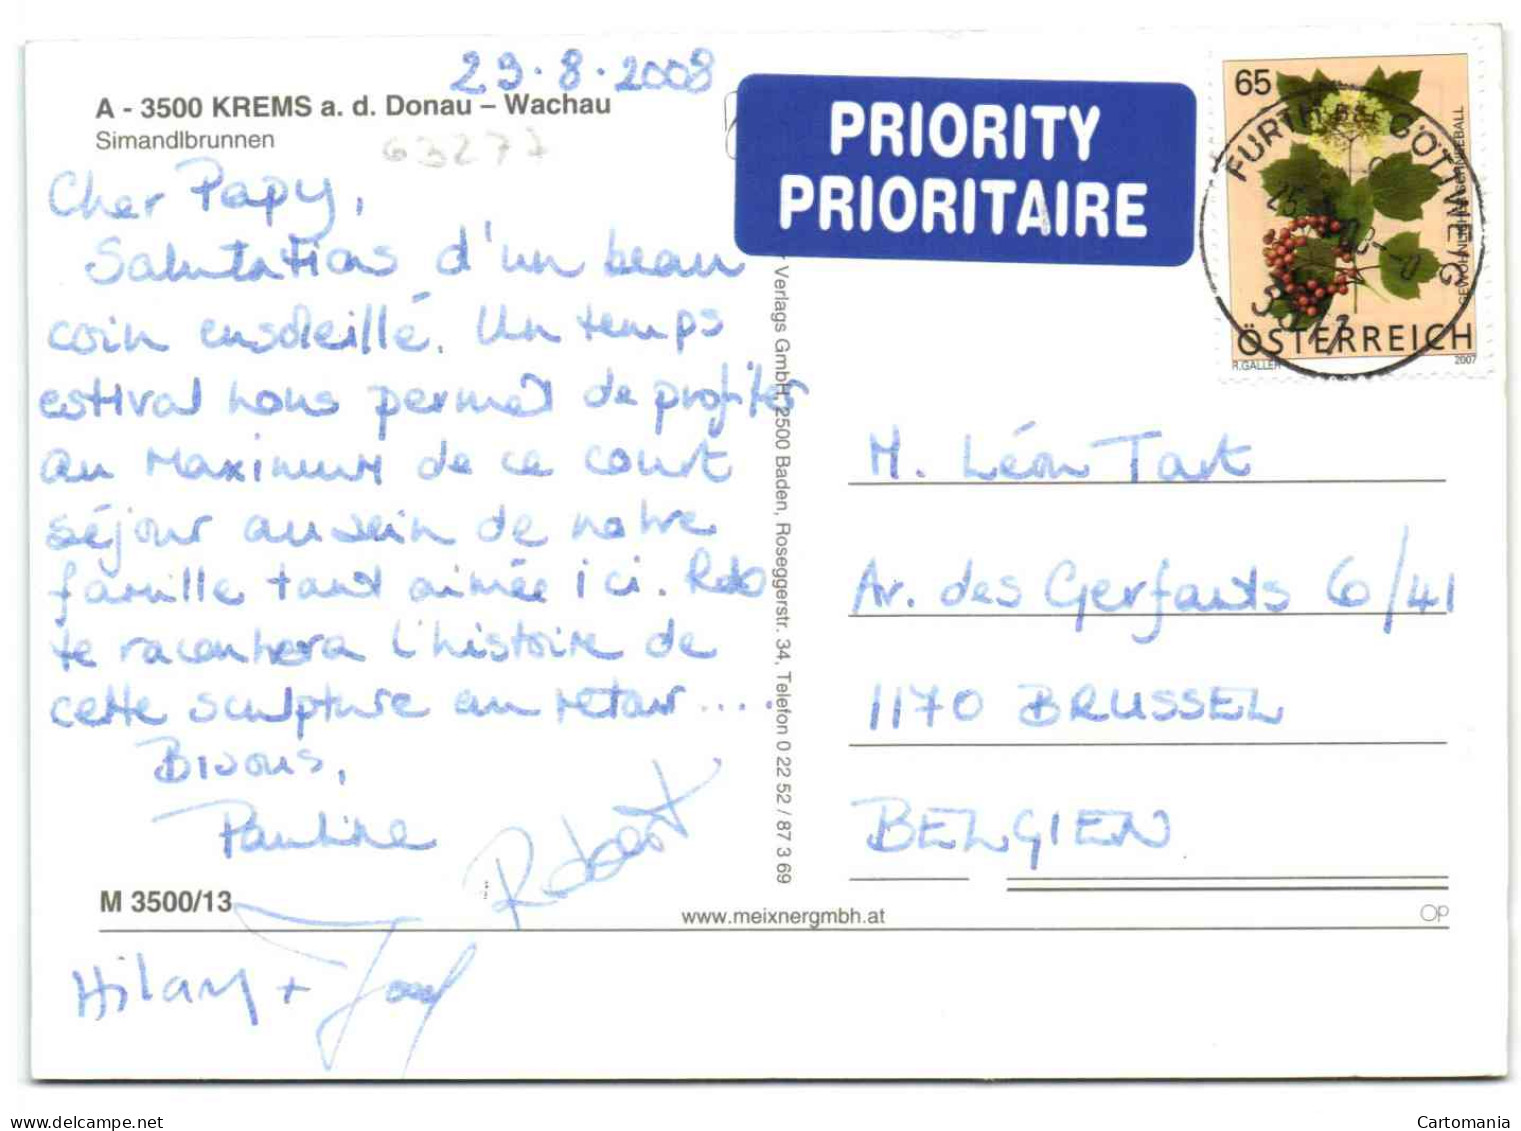 29.8.2008
A - 3500 KREMS a. d. Donau – Wachau
Simandlbrunnen
63277
Cher Papy,
Salutations d'un beau
coin ensoleillé. Un temps
estival nous permet de profiter
au maximum de ce court
séjour au sein de notre
famille tant aimée ici. Rob
te racontera l'histoire de
cette sculpture au retour ....
Bisous,
Pauline
Robert
M 3500/13
Hilary +
PRIORITY
PRIORITAIRE
65
FURTH BEI GÖTTWEIG
3511
GEWÖHNLICHER SCHNEEBALL
ÖSTERREICH
R.GALLER 2007
Verlags GmbH, 2500 Baden, Roseggerstr. 34, Telefon 0 22 52 / 87 3 69
M. Léon Tart
Av. des Gerfauts 6/41
1170 BRUSSEL
BELGIEN
www.meixnergmbh.at
OP
delcampe.net
Cartomania